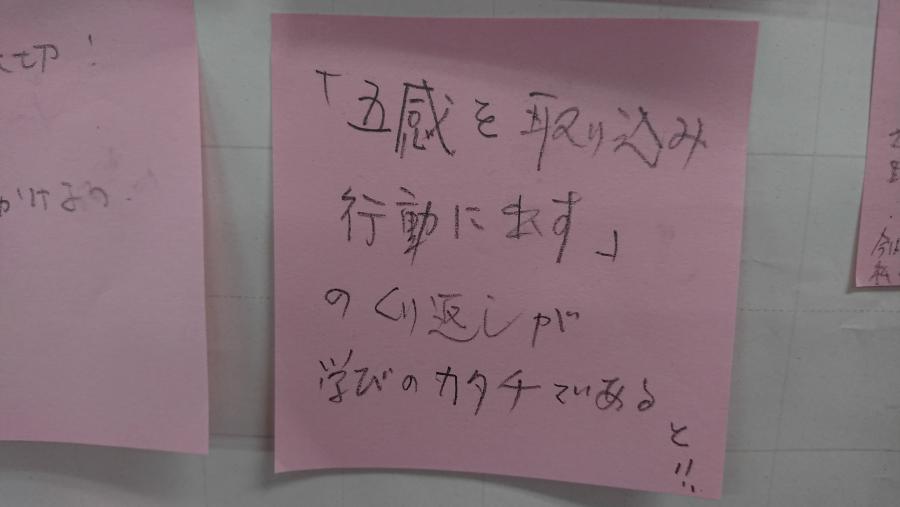 大切!
かけよう。
「五感を取り込み
行動に出す」
のくり返しが
学びのカタチである
と!!